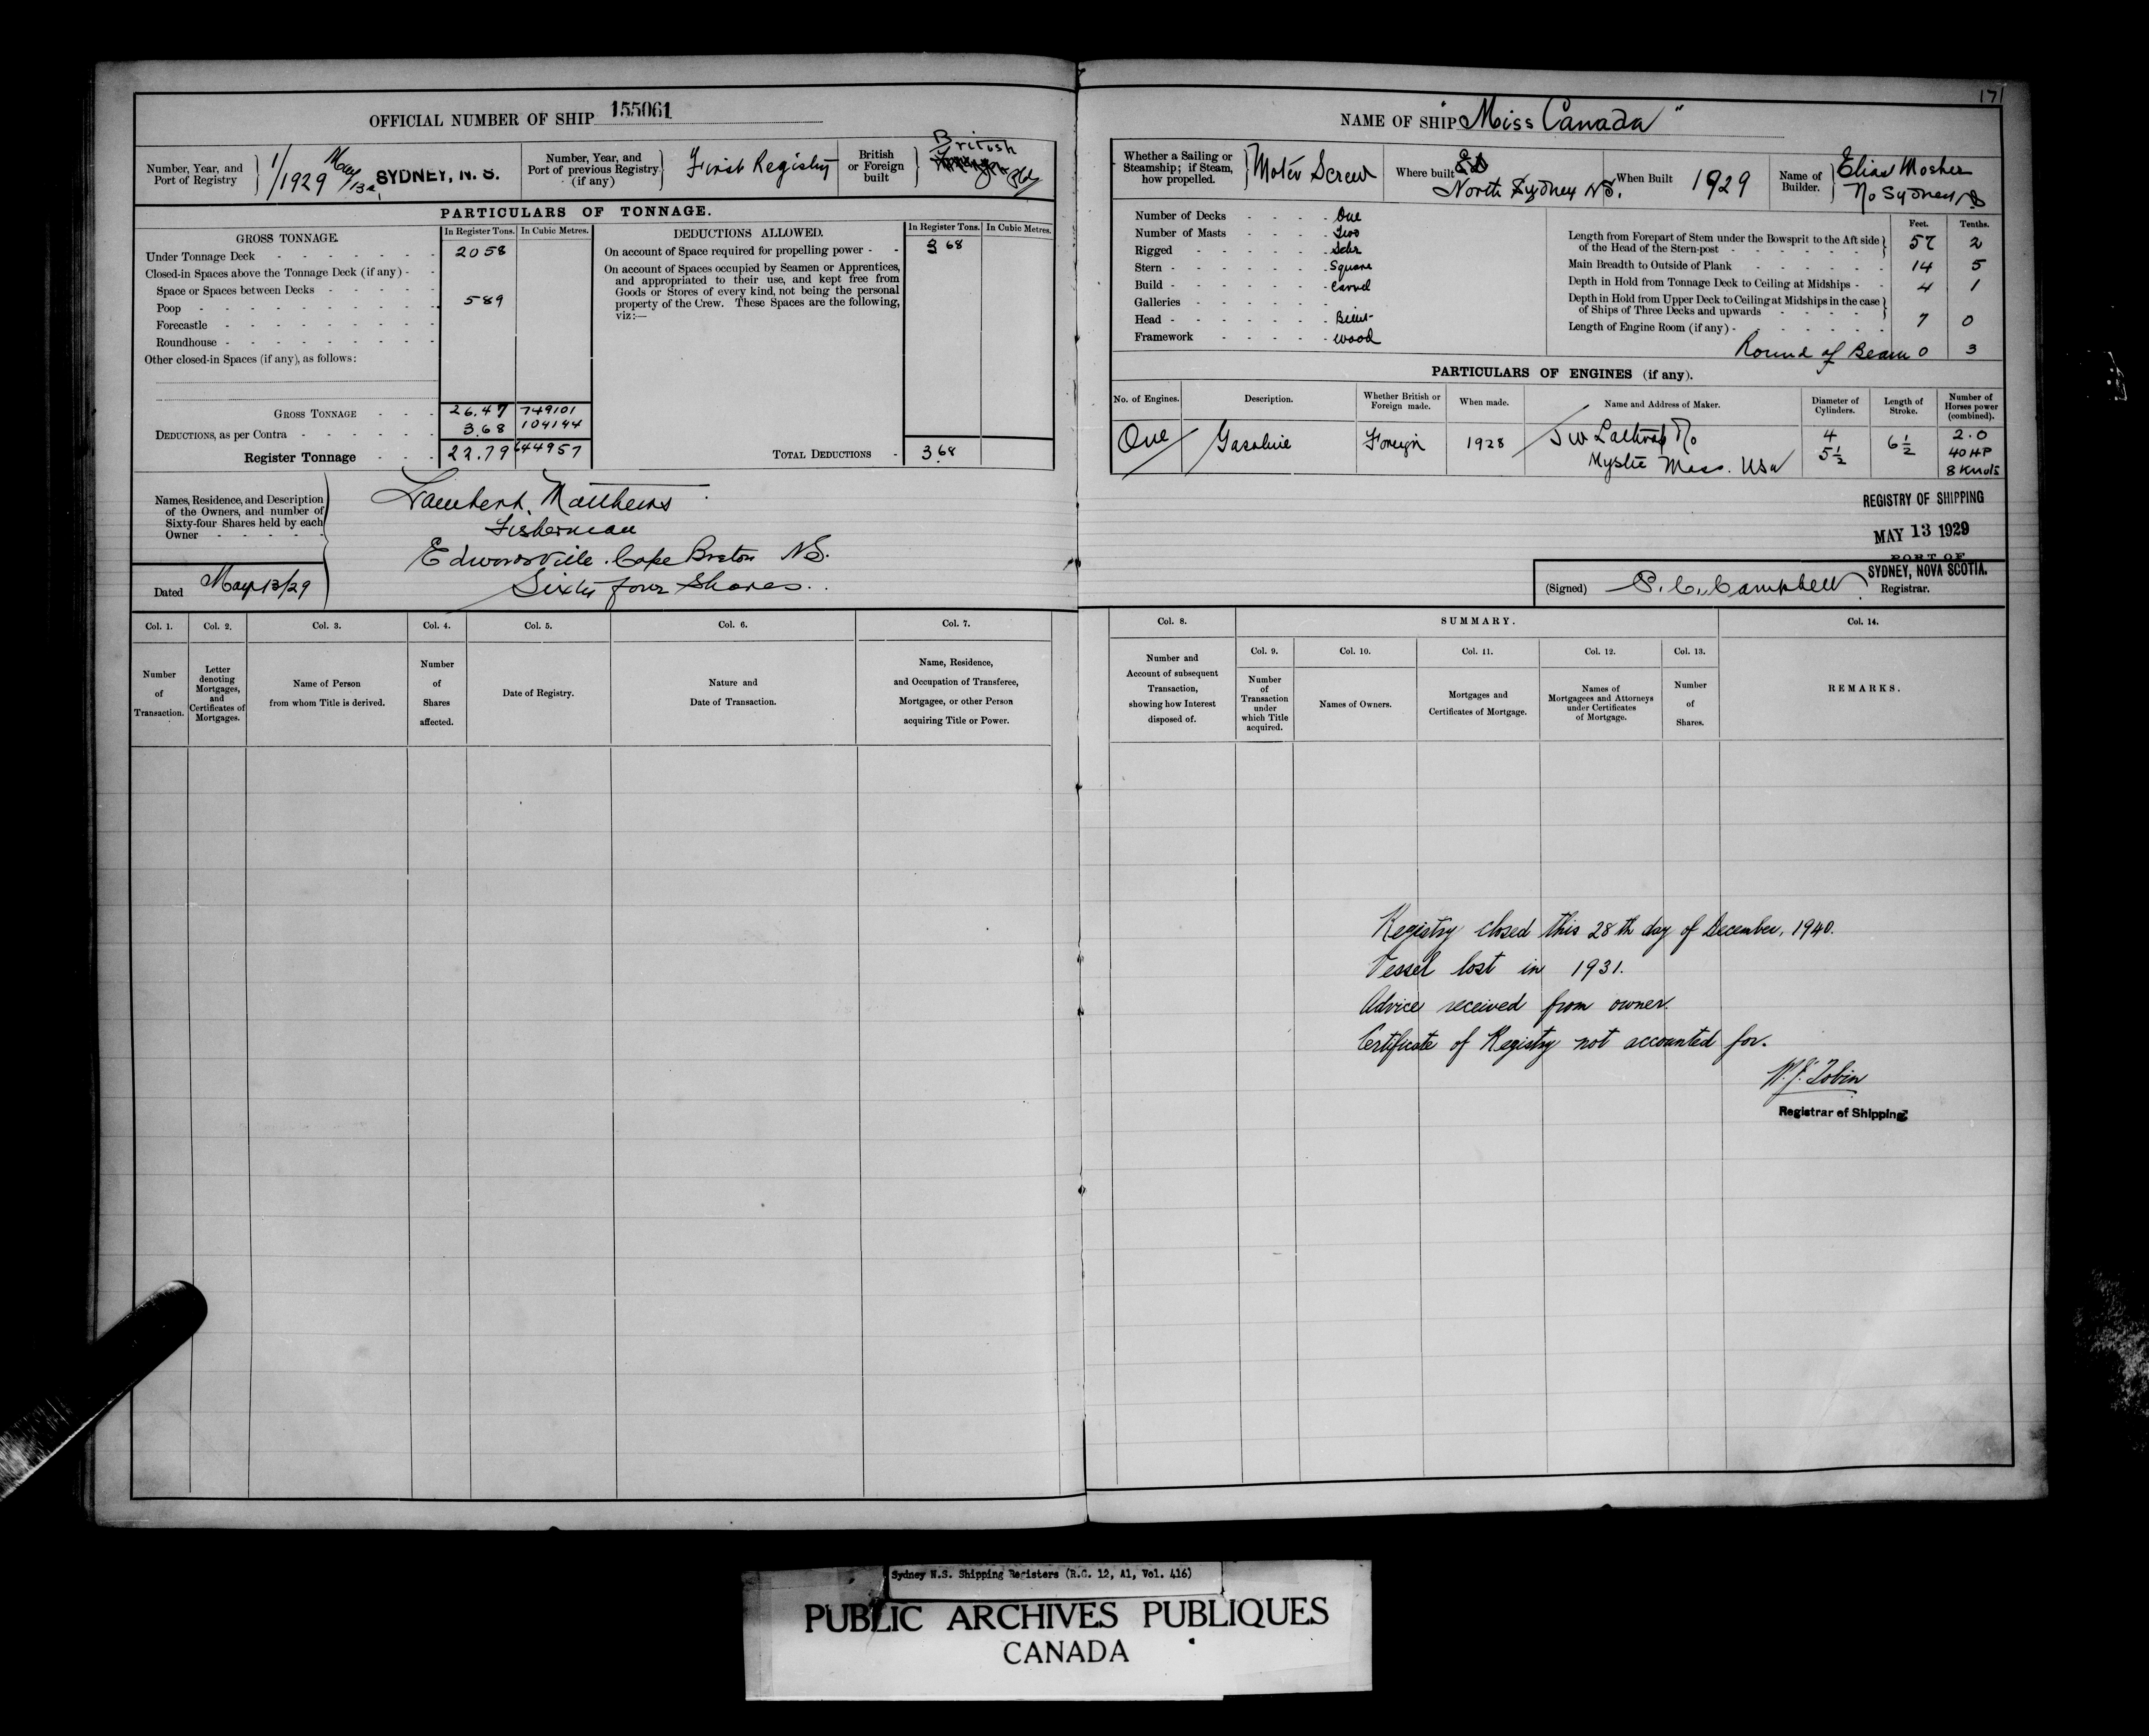 171
OFFICIAL NUMBER OF SHIP 155061
Number, Year, and Port of Registry 1/1929 May/13 SYDNEY, N. S.
Number, Year, and Port of previous Registry (if any) First Registry
British or Foreign built British
PARTICULARS OF TONNAGE.
GROSS TONNAGE. In Register Tons. In Cubic Metres.
Under Tonnage Deck 20 58
Closed-in Spaces above the Tonnage Deck (if any) -
Space or Spaces between Decks
Poop 5 89
Forecastle
Roundhouse
Other closed-in Spaces (if any), as follows:
GROSS TONNAGE 26.47 749101
DEDUCTIONS, as per Contra 3.68 104144
Register Tonnage 22.79 644957
DEDUCTIONS ALLOWED. In Register Tons. In Cubic Metres.
On account of Space required for propelling power - 3 68
On account of Spaces occupied by Seamen or Apprentices,
and appropriated to their use, and kept free from
Goods or Stores of every kind, not being the personal
property of the Crew. These Spaces are the following,
viz:—
TOTAL DEDUCTIONS - 3 68
Names, Residence, and Description
of the Owners, and number of
Sixty-four Shares held by each
Owner
Lambert Matthews
Fisherman
Edwardsville. Cape Breton NS.
Sixty four Shares.
Dated May 13/29
NAME OF SHIP "Miss Canada"
Whether a Sailing or Steamship; if Steam, how propelled. Motor Screw
Where built North Sydney NS.
When Built 1929
Name of Builder. Elias Mosher
No Sydney NS
Number of Decks One
Number of Masts Two
Rigged Schr
Stern Square
Build Carvel
Galleries
Head
Framework wood
Feet. Tenths.
Length from Forepart of Stem under the Bowsprit to the Aft side of the Head of the Stern-post 57 2
Main Breadth to Outside of Plank 14 5
Depth in Hold from Tonnage Deck to Ceiling at Midships 4 1
Depth in Hold from Upper Deck to Ceiling at Midships in the case of Ships of Three Decks and upwards
Length of Engine Room (if any) 7 0
Round of Beam 0 3
PARTICULARS OF ENGINES (if any).
No. of Engines. Description. Whether British or Foreign made. When made. Name and Address of Maker. Diameter of Cylinders. Length of Stroke. Number of Horses power (combined).
One Gasoline Foreign 1928 J W Lathrop Co 4 6 1/2 2.0
Mystic Mass. USA 5 1/2 40 HP
8 Knots
REGISTRY OF SHIPPING
MAY 13 1929
PORT OF
SYDNEY, NOVA SCOTIA.
(Signed) Campbell Registrar.
Col. 1. Col. 2. Col. 3. Col. 4. Col. 5. Col. 6. Col. 7.
Number of Transaction.
Letter denoting Mortgages, and Certificates of Mortgages.
Name of Person from whom Title is derived.
Number of Shares affected.
Date of Registry.
Nature and Date of Transaction.
Name, Residence, and Occupation of Transferee, Mortgagee, or other Person acquiring Title or Power.
Col. 8. SUMMARY. Col. 14.
Col. 9. Col. 10. Col. 11. Col. 12. Col. 13.
Number and Account of subsequent Transaction, showing how Interest disposed of.
Number of Transaction under which Title acquired.
Names of Owners.
Mortgages and Certificates of Mortgage.
Names of Mortgagees and Attorneys under Certificates of Mortgage.
Number of Shares.
REMARKS.
Registry closed this 28th day of December, 1940.
Vessel lost in 1931.
Advice received from owner.
Certificate of Registry not accounted for.
W. J. Tobin
Registrar of Shipping
Sydney N.S. Shipping Registers (R.G. 12, A1, Vol. 416)
PUBLIC ARCHIVES PUBLIQUES
CANADA